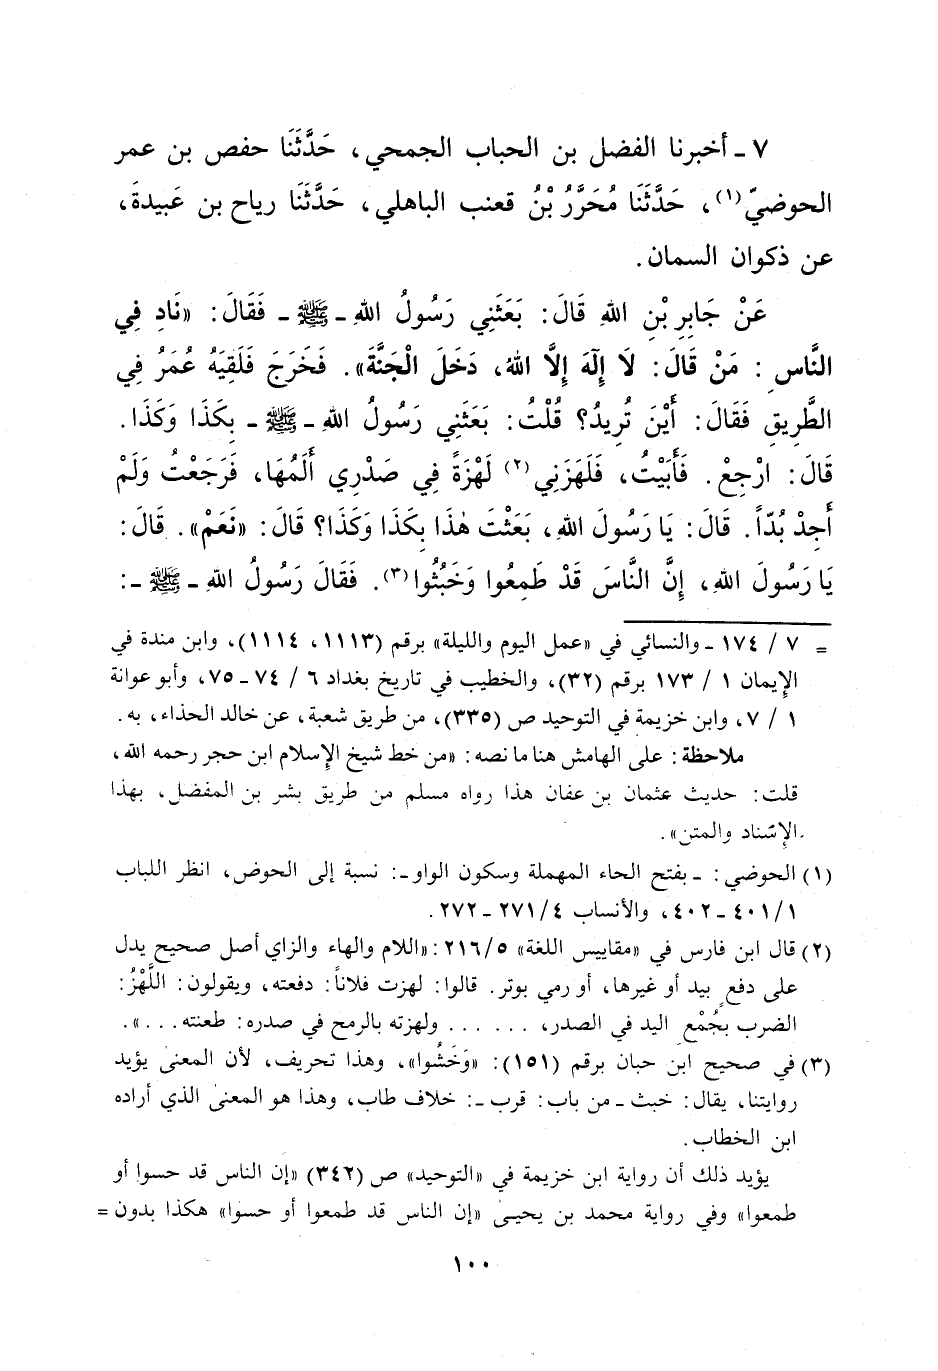 ٧ ـ أخبرنا الفضل بن الحباب الجمحي، حَدَّثَنَا حفص بن عمر
الحوضيّ(١)، حَدَّثَنَا مُحَرَّرُ بْنُ قعنب الباهلي، حَدَّثَنَا رياح بن عَبيدةَ،
عن ذكوان السمان.
عَنْ جَابِرِ بْنِ اللهِ قَالَ: بَعَثَنِي رَسُولُ اللهِ ـ ﷺ ـ فَقَالَ: «نَادِ فِي
النَّاسِ : مَنْ قَالَ: لَا إِلٰهَ إِلَّا اللهُ، دَخَلَ الْجَنَّةَ». فَخَرَجَ فَلَقِيَهُ عُمَرُ فِي
الطَّرِيقِ فَقَالَ: أَيْنَ تُرِيدُ؟ قُلْتُ: بَعَثَنِي رَسُولُ اللهِ ـ ﷺ ـ بِكَذَا وَكَذَا.
قَالَ: ارْجِعْ. فَأَبَيْتُ، فَلَهَزَنِي(٢) لَهْزَةً فِي صَدْرِي أَلَمُهَا، فَرَجَعْتُ وَلَمْ
أَجِدْ بُدّاً. قَالَ: يَا رَسُولَ اللهِ، بَعَثْتَ هٰذَا بِكَذَا وَكَذَا؟ قَالَ: «نَعَمْ». قَالَ:
يَا رَسُولَ اللهِ، إِنَّ النَّاسَ قَدْ طَمِعُوا وَخَبُثُوا(٣). فَقَالَ رَسُولُ اللهِ ـ ﷺ ـ:
= ٧ / ١٧٤ ـ والنسائي في «عمل اليوم والليلة» برقم (١١١٣، ١١١٤)، وابن مندة في
الإيمان ١ / ١٧٣ برقم (٣٢)، والخطيب في تاريخ بغداد ٦ / ٧٤ ـ ٧٥، وأبو عوانة
١ / ٧، وابن خزيمة في التوحيد ص (٣٣٥)، من طريق شعبة، عن خالد الحذاء، به.
ملاحظة: على الهامش هنا ما نصه: «من خط شيخ الإسلام ابن حجر رحمه الله،
قلت: حديث عثمان بن عفان هذا رواه مسلم من طريق بشر بن المفضل، بهذا
الإسناد والمتن».
(١) الحوضي: ـ بفتح الحاء المهملة وسكون الواو ـ: نسبة إلى الحوض، انظر اللباب
٤٠١/١ ـ ٤٠٢، والأنساب ٢٧١/٤ ـ ٢٧٢.
(٢) قال ابن فارس في «مقاييس اللغة» ٢١٦/٥: «اللام والهاء والزاي أصل صحيح يدل
على دفعٍ بيد أو غيرها، أو رمي بوتر. قالوا: لهزت فلاناً: دفعته، ويقولون: اللَّهْزُ:
الضرب بجُمْعِ اليد في الصدر، ...... ولهزته بالرمح في صدره: طعنته ...».
(٣) في صحيح ابن حبان برقم (١٥١): «وَخَشُوا»، وهذا تحريف، لأن المعنى يؤيد
روايتنا، يقال: خبث ـ من باب: قرب ـ: خلاف طاب، وهذا هو المعنى الذي أراده
ابن الخطاب.
يؤيد ذلك أن رواية ابن خزيمة في «التوحيد» ص (٣٤٢) «إن الناس قد حسوا أو
طمعوا» وفي رواية محمد بن يحيى «إن الناس قد طمعوا أو حسوا» هكذا بدون =
١٠٠